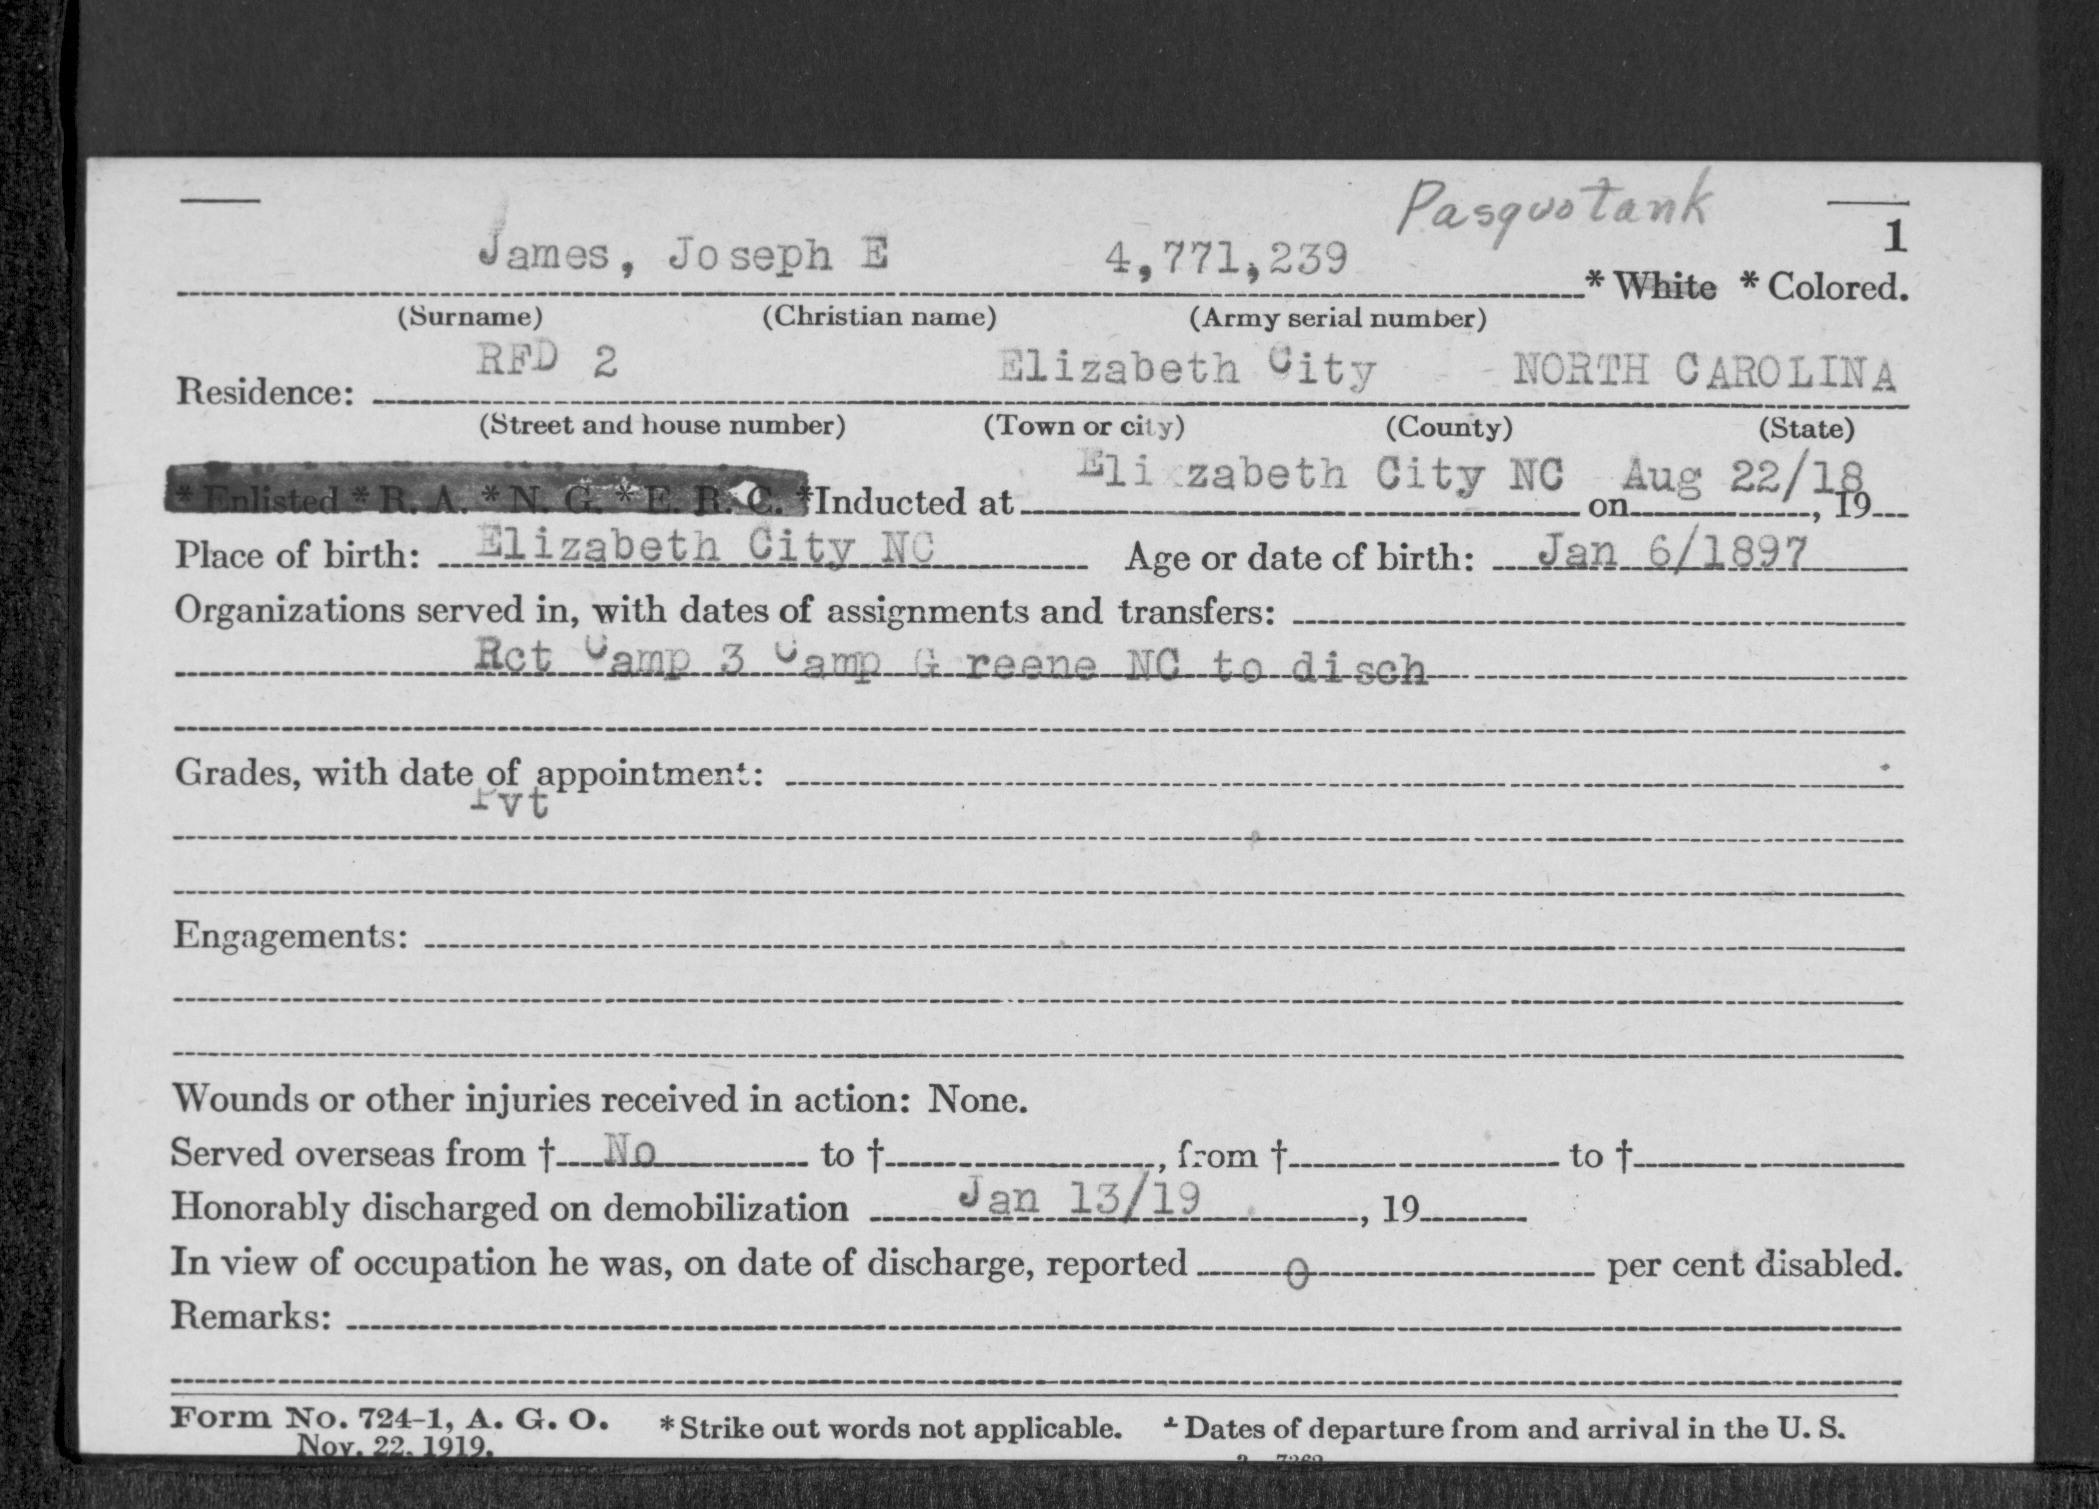 Pasquotank
1
James, Joseph E 4,771,239 * White * Colored.
(Surname) (Christian name) (Army serial number)
RFD 2 Elizabeth City NORTH CAROLINA
Residence:
(Street and house number) (Town or city) (County) (State)
* Enlisted * R. A. * N. G. * E. R. C. *Inducted at Elizabeth City NC on Aug 22/18, 19
Place of birth: Elizabeth City NC Age or date of birth: Jan 6/1897
Organizations served in, with dates of assignments and transfers:
Rct Camp 3 Camp Greene NC to disch
Grades, with date of appointment:
Pvt
Engagements:
Wounds or other injuries received in action: None.
Served overseas from † No to †, from † to †
Honorably discharged on demobilization Jan 13/19, 19
In view of occupation he was, on date of discharge, reported 0 per cent disabled.
Remarks:
Form No. 724-1, A. G. O. * Strike out words not applicable. † Dates of departure from and arrival in the U. S.
Nov. 22, 1919.